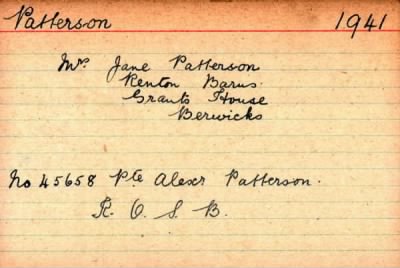 Patterson 1941
Mrs Jane Patterson
Renton Barns.
Grants House
Berwicks
No 45658 Pte Alexr Patterson.
K. O. S. B.